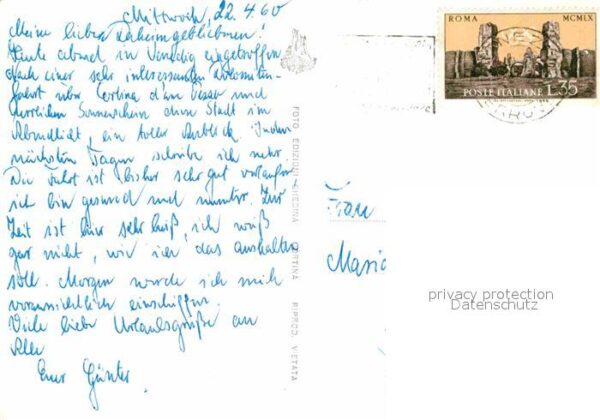 Mittwoch, 22.4.60
Meine lieben Daheimgebliebenen!
Heute abend in Venedig eingetroffen
nach einer sehr interessanten Dolomiten-
fahrt über Cortina d'am und
herrlichem Sonnenschein dann Stadt im
Abendlicht, ein toller Anblick. In den
nächsten Tagen schreibe ich mehr.
Die Fahrt ist bisher sehr gut verlaufen
ich bin gesund und munter. Zur
Zeit ist hier sehr heiß, ich weiß
gar nicht, wie ich das aushalten
soll. Morgen werde ich mich
voraussichtlich einschiffen.
Viele liebe Urlaubsgrüße an
Alle
Euer Günter.
FOTO EDIZIONI GHEDINA CORTINA RIPROD. VIETATA
ROMA MCMLX
POSTE ITALIANE L.35
Frau
Maria
privacy protection
Datenschutz